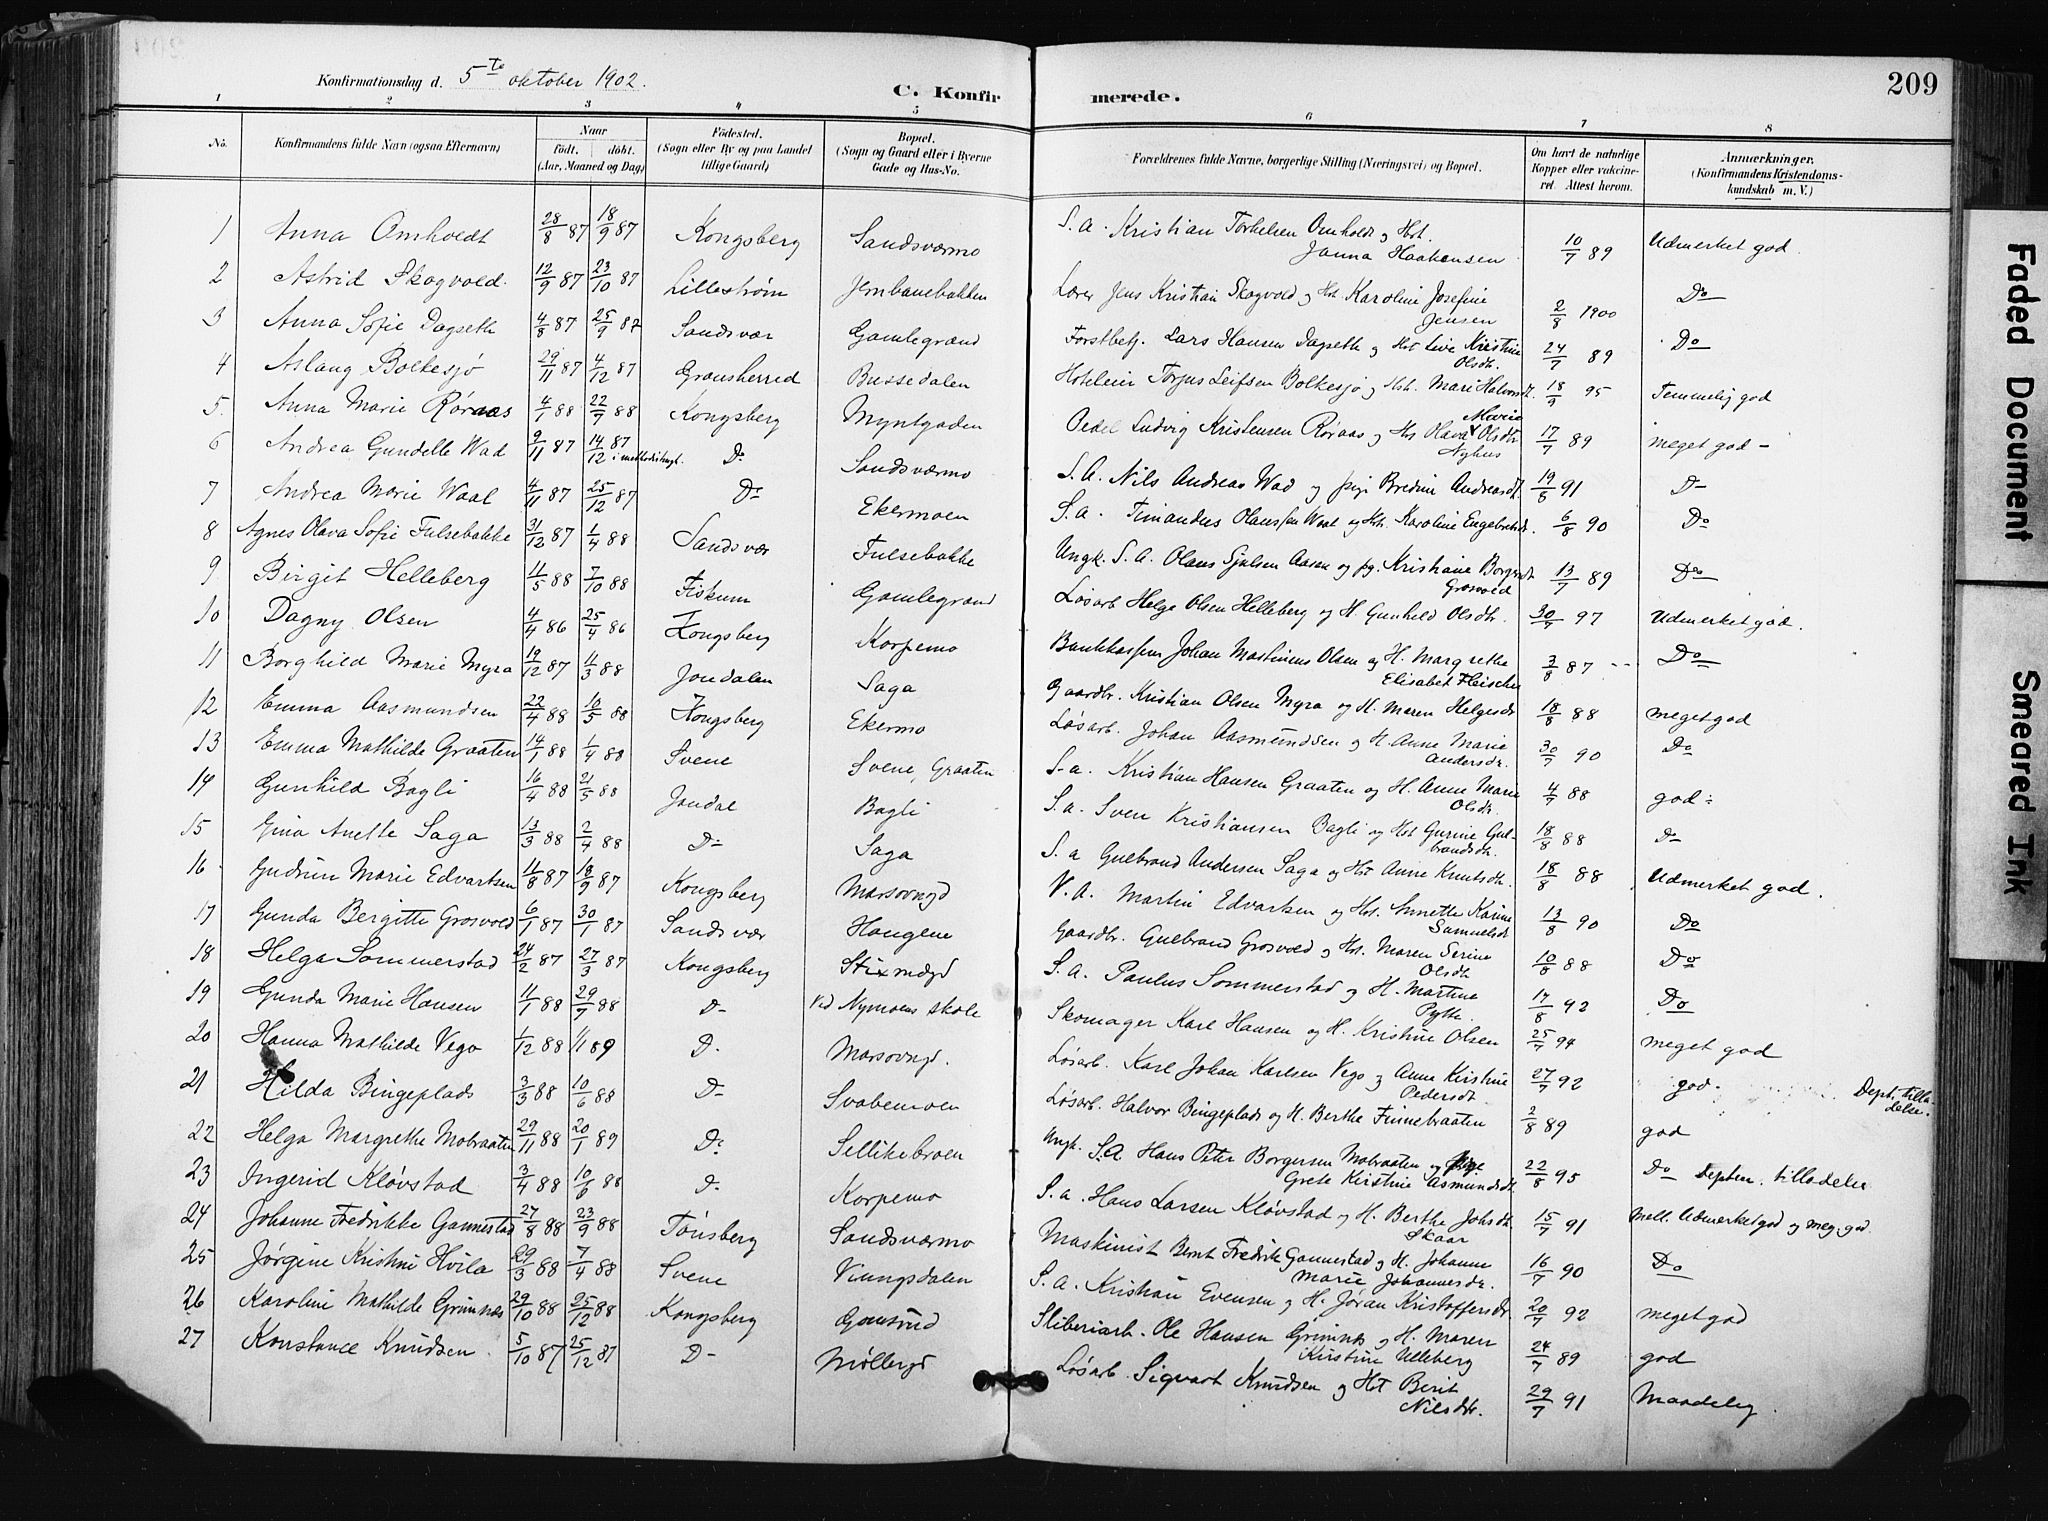 209
Konfirmationsdag d. 5te oktober 1902.
C. Konfirmerede.
1 2 3 " 5 6 7 8
No.
Konfirmandens fulde Navn (ogsaa Efternavn)
Naar
født. døbt.
(Aar, Maaned og Dag)
Fødested.
(Sogn eller By og paa Landet
tillige Gaard)
Bopæl.
(Sogn og Gaard eller i Byerne
Gade og Hus-No.
Forældrenes fulde Navne, borgerlige Stilling (Næringsvei) og Bopæl.
Om havt de naturlige
Kopper eller vakcine-
ret. Attest herom.
Anmærkninger.
(Konfirmandens Kristendoms-
kundskab m. V.)
1 Anna Omholdt 28/8 87 18/9 87 Kongsberg Sandsværmo S. a. Kristian Torkelsen Omholdt og Hst. Janna Haakensen 10/7 89 Udmerket god.
2 Astrid Skogvold. 12/9 87 23/10 87 Lillestrøm Jernbanebakken Lærer Jens Kristian Skogvold og Hst. Karoline Josefine Jensen 2/8 1900 Do
3 Anna Sofie Dagseth 4/8 87 25/9 87 Sandsvær Gamlegrænd Forstbetj. Lars Hansen Dagseth og Hst Live Kristine Olsdt. 24/7 89 Do
4 Aslaug Bolkesjø 29/11 87 4/12 87 Gransherred Bussedalen Hoteleier Torjus Leifsen Bolkesjø og Hst. Mari Halvorsdt. 18/9 95 Temmelig god
5. Anna Marie Røraas 4/1 88 22/9 88 Kongsberg Myntgaden Ludvig Kristensen Røraas og Hst Olava Marie Olsdtr Nyhus 17/7 89 meget god -
6 Andrea Gundelle Wad 9/11 87 14/12 87 i methodistmgt. Do Sandsværmo S. A. Nils Andreas Wad og pige Bredine Andreasdt. 19/8 91 D-
7 Andrea Marie Waal 4/11 87 25/12 87 Do Ekermoen S. a. Timandus Olaussen Waal og Hst. Karoline Engebretsdt. 6/8 90 Do
8 Agnes Olava Sofie Fulsebakke 31/12 87 1/4 88 Sandsvær Fulsebakke Ungk. S. A. Olaus Sjulsen Aasen og pg. Kristiane Borgersdt Grosvold 13/7 89 Do
9 Birgit Helleberg 11/5 88 7/10 88 Fiskum Gamlegrænd Løsarb Helge Olsen Helleberg og H. Gunhild Olsdtr. 30/7 97 Udmerket god.
10 Dagny Olsen 4/4 86 25/4 86 Kongsberg Korpemo Bankkasserer Johan Mastinius Olsen og H. Margrethe Elisabet Fleischer 3/8 87 -- Do
11 Borghild Marie Myra 19/12 87 11/3 88 Jondalen Saga Gaardbr. Kristian Olsen Myra og H. Maren Helgesdt 18/8 88 meget god
12 Emma Aasmundsen 22/4 88 10/5 88 Kongsberg Ekermo Løsarb. Johan Aasmundsen og H. Anne Marie Andersdr. 30/7 90 Do
13 Emma Mathilde Graaten 14/1 88 1/4 88 Svene Svene, Graaten S-a. Kristian Hansen Graaten og H. Anne Marie Olsdt. 4/7 88 god -
14 Gunhild Bagli 16/4 88 21/5 88 Jondal Bagli S. a. Sven Kristiansen Bagli og Hst Gurine Gulbrandsdt. 18/8 88 D-
15 Gina Anette Saga 13/3 88 2/4 88 D- Saga S. a Gulbrand Andersen Saga og Hst Anne Knutsdt. 18/8 88 Udmerket god.
16 Gudrun Marie Edvartsen 11/8 87 18/9 87 Kongsberg Marsovngd V. A. Martin Edvartsen og Hst. Annette Karine Samuelsdt 13/8 90 Do
17 Gunda Bergitte Grosvold 6/1 87 30/1 87 Sandsvær Haugene Gaardbr. Gulbrand Grosvold og Hst. Maren Serine Olsdt. 10/8 88 Do
18 Helga Sommerstad 24/2 87 27/3 87 Kongsberg S. A. Paulus Sommerstad og H. Martine Pytte. 17/8 92 Do
19 Gunda Marie Hansen 11/1 88 29/7 88 D- Ved Nymoens skole Skomager Karl Hansen og H. Kristine Olsen 25/7 94 meget god
20 Hanna Mathilde Vego 1/12 88 1/1 89 D. Marsovngd. Løsarb. Karl Johan Karlsen Vego og Anne Kirstine Pedersdt 27/7 92 god. Dept. tilladelse.
21 Hilda Bingeplads 3/3 88 10/6 88 D- Svabemoen Løsarb. Halvor Bingeplads og H. Berthe Finnebraaten 2/8 89 god
22 Helga Margrethe Mobraaten 29/11 88 20/1 89 Do Sellikebroen Ungk. S. A. Hans Peter Borgersen Mobraaten og pige Grete Kirstine Asmundsdt. 22/8 95 Do Depten. tilladelse
23 Ingerid Kløvstad 3/4 88 10/6 88 D. Korpemo S. a. Hans Larsen Kløvstad og H. Berthe Johsdt. Skaar 15/7 91 Mell. Udmerket god og meg. god.
24 Johanne Fredrikke Gannestad 27/8 88 23/9 88 Tønsberg Sandsværmo Maskinist Bernt Fredrik Gannestad og H. Johanne Marie Johannesdr. 16/7 90 Do
25 Jørgine Kristine Hvila 29/3 88 7/4 88 Svene Vinngsdalen S. A. Kristian Evensen og H. Jøran Kristoffersdt. 20/7 92 meget god
26 Karoline Mathilde Grimnæs 29/10 88 25/12 88 Kongsberg Gomsrud Sliberiarb. Ole Hansen Grimnæs og H. Maren Kirstine Ulleberg 24/7 89 god
27 Konstance Knudsen. 5/10 87 25/12 87 D- Møllergd Løsarb. Sigvart Knudsen og Hst Berit Nilsdtr. 29/7 91 Maadelig.
Faded Document
Smeared Ink